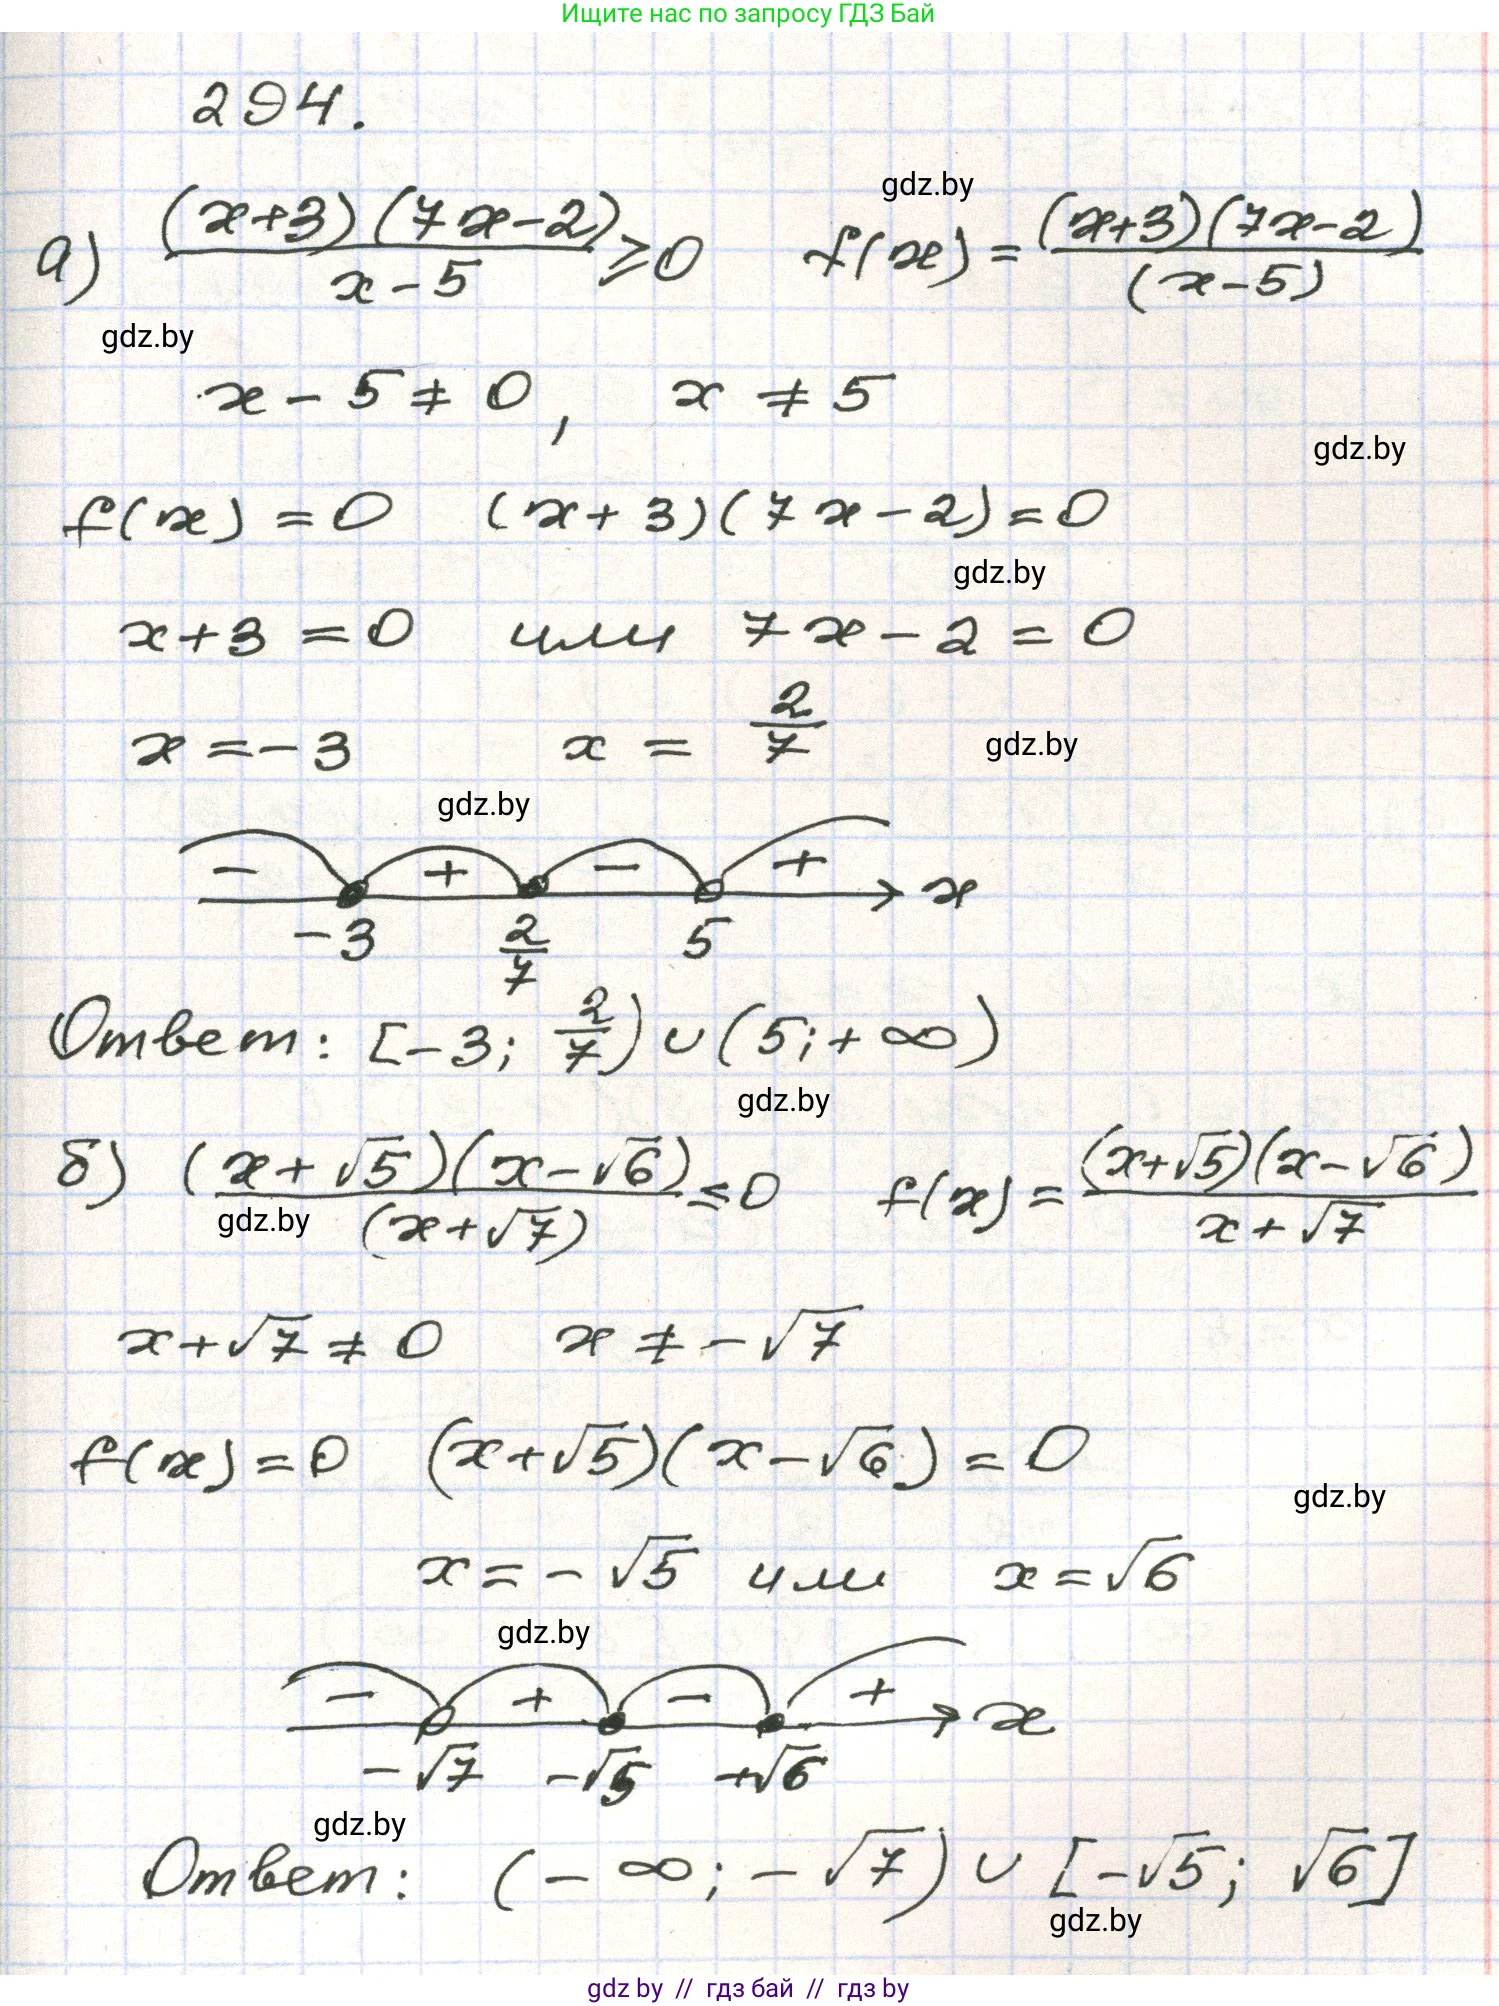 Ищите нас по запросу ГДЗ Бай
294.
а) (x+3)(7x-2)/(x-5) ≥ 0 f(x) = (x+3)(7x-2)/(x-5)
gdz.by
gdz.by
x - 5 ≠ 0, x ≠ 5
gdz.by
f(x) = 0 (x+3)(7x-2) = 0
gdz.by
x+3 = 0 или 7x - 2 = 0
x = -3 x = 2/7
gdz.by
gdz.by
- + - + x
-3 2/7 5
Ответ: [-3; 2/7) ∪ (5; +∞)
gdz.by
б) (x+√5)(x-√6)/(x+√7) ≤ 0 f(x) = (x+√5)(x-√6)/x+√7
gdz.by
x+√7 ≠ 0 x ≠ -√7
f(x) = 0 (x+√5)(x-√6) = 0
gdz.by
x = -√5 или x = √6
gdz.by
- + - + x
-√7 -√5 +√6
gdz.by
Ответ: (-∞; -√7) ∪ [-√5; √6]
gdz.by
gdz by // гдз бай // гдз by